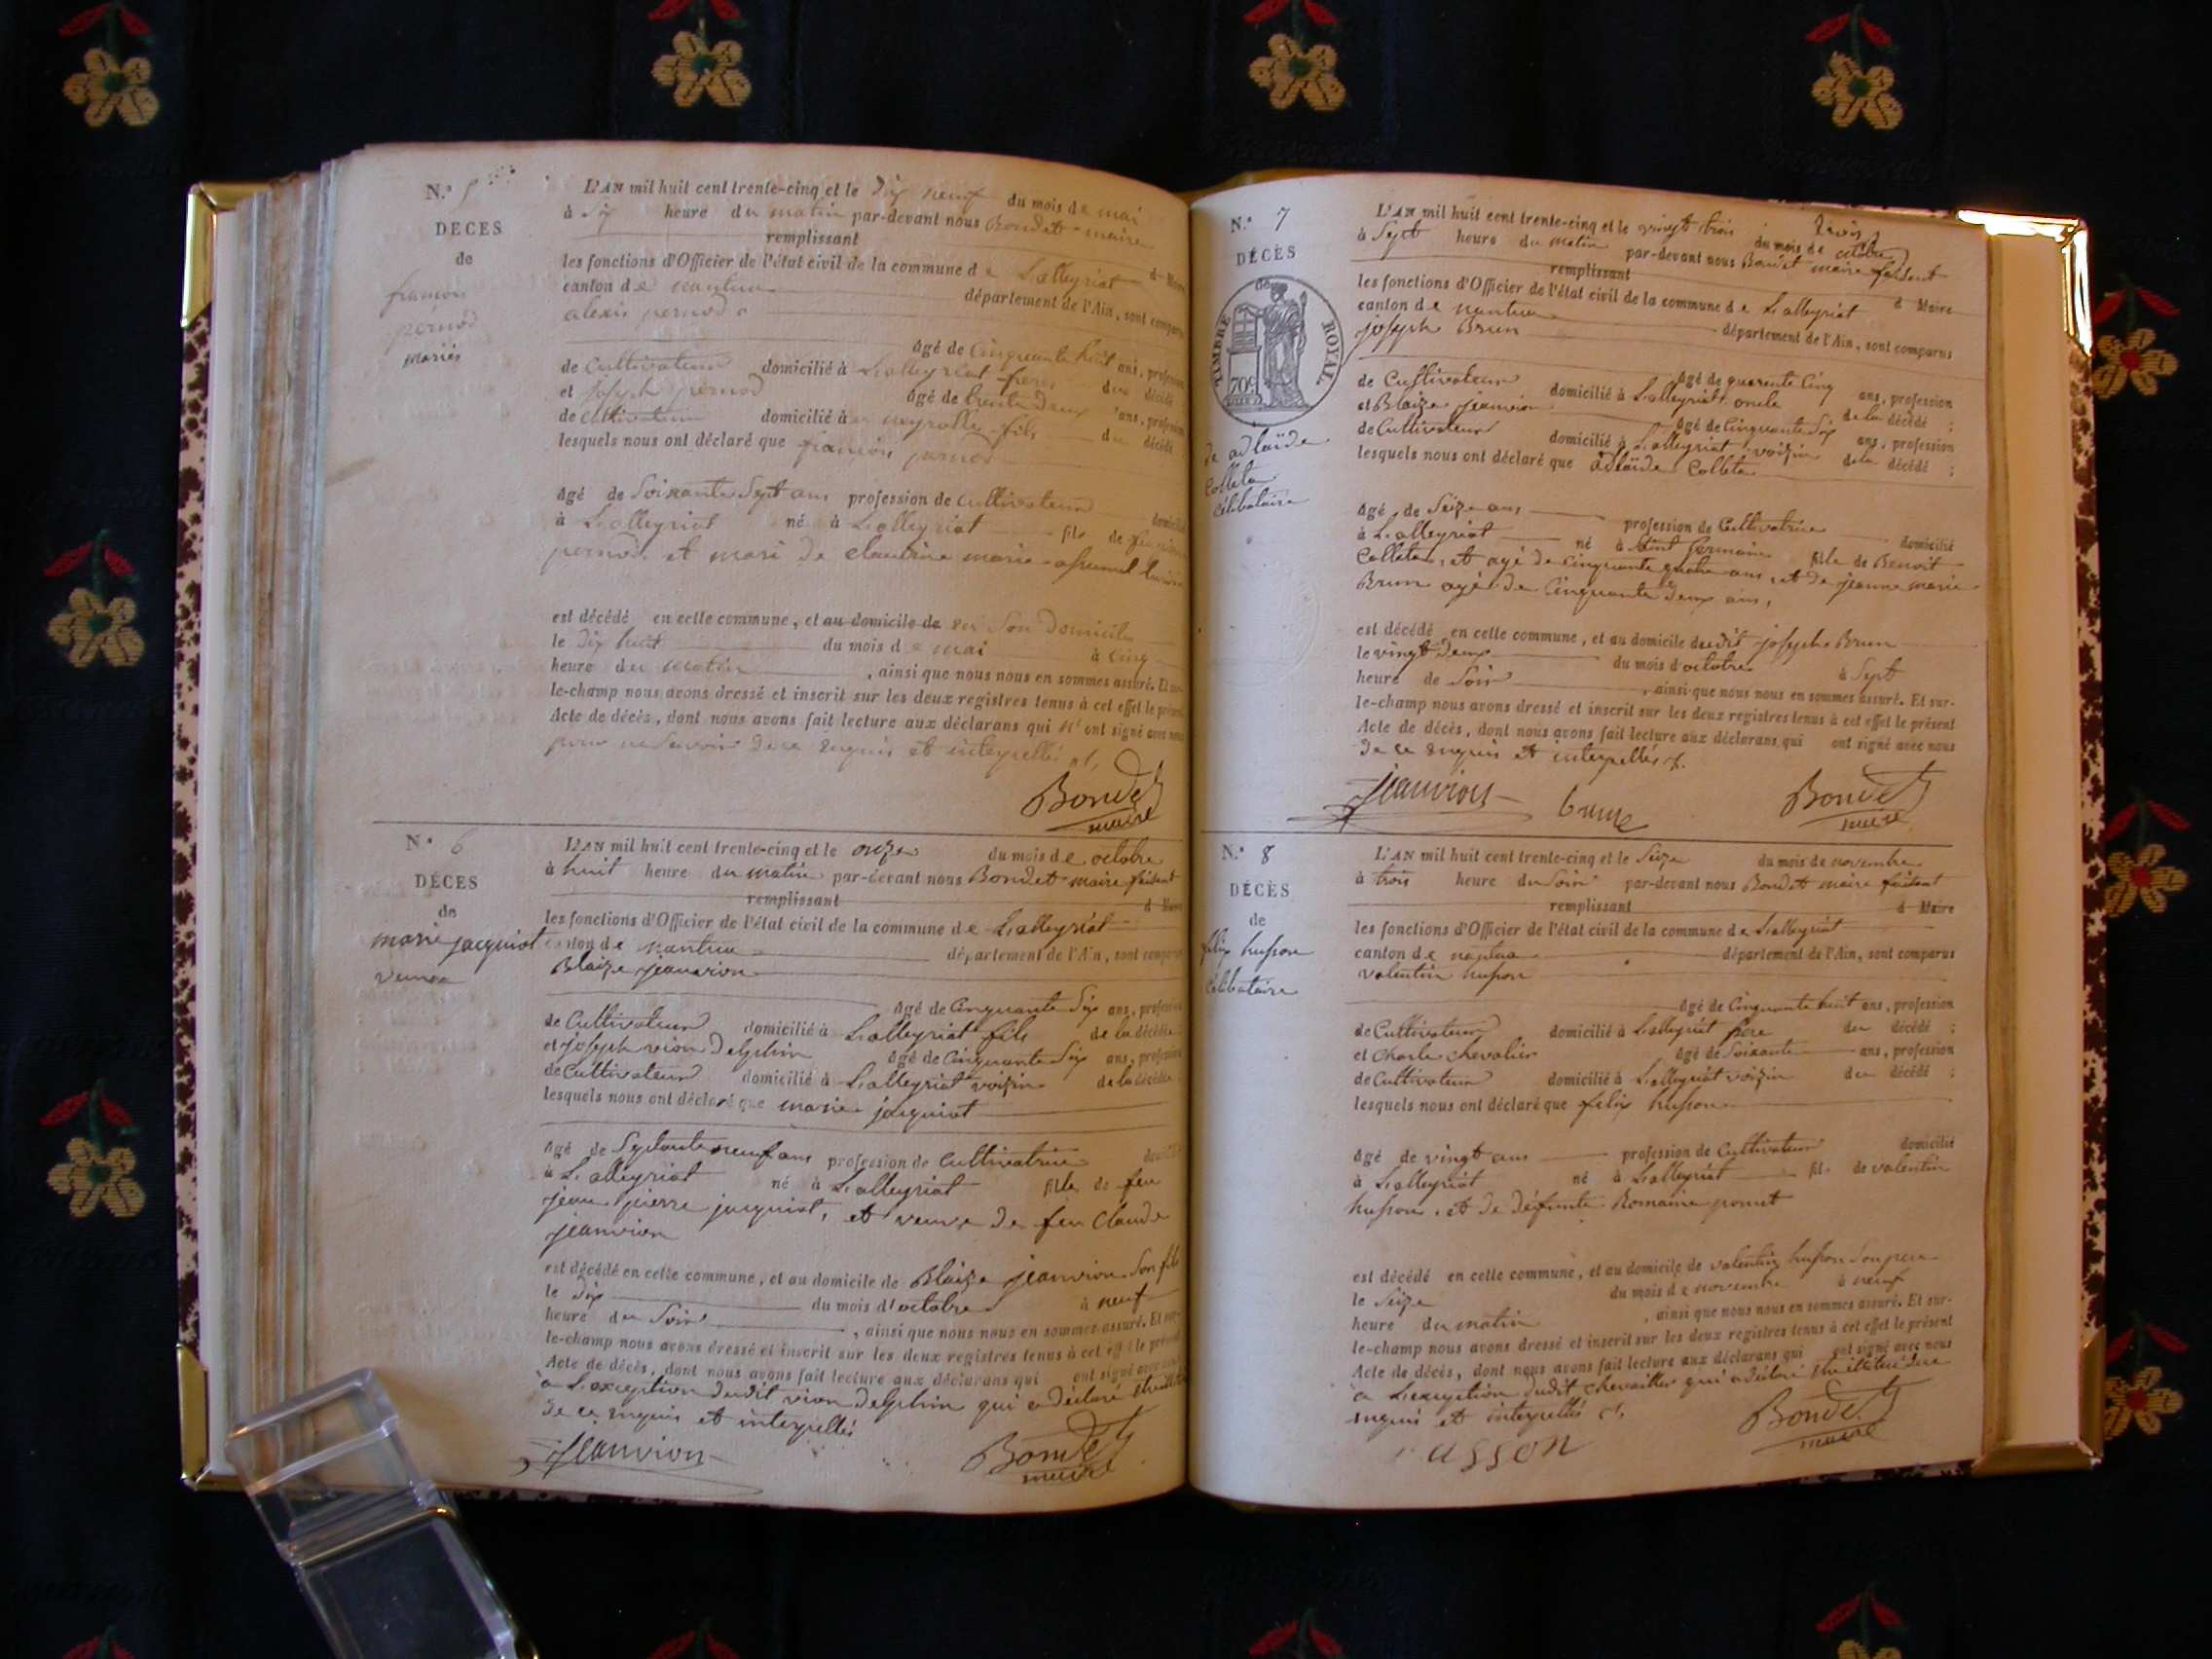 N.º 5
DECES
de
françois
pernod
mariés
L'AN mil huit cent trente-cinq et le dix neuf du mois de mai
à Six heure du matin par-devant nous Bondet maire
remplissant d Maire
les fonctions d'Officier de l'état civil de la commune de Lalleyriat
canton de nantua département de l'Ain, sont comparus
alexis pernod
agé de Cinquante huit ans, profession
de Cultivateur domicilié à Lalleyriat frere du décédé
et Joseph pernod agé de trente deux ans, profession
de Cultivateur domicilié à neyrolle fils du décédé
lesquels nous ont déclaré que françois pernod
agé de Soixante Sept ans profession de Cultivateur
à Lalleyriat né à Lalleyriat fils de
pernod et mari de claudine marie
est décédé en cette commune, et au domicile de en Son Domicile
le Dix huit du mois de mai à cinq
heure du matin, ainsi que nous nous en sommes assuré. Et sur-
le-champ nous avons dressé et inscrit sur les deux registres tenus à cet effet le présent
Acte de décès, dont nous avons fait lecture aux déclarans qui n'ont signé avec nous
pour ne Savoir de ce enquis et interpellés
Bondet
maire
N.º 6
DÉCES
de
marie jacquiot
veuve
L'AN mil huit cent trente-cinq et le onze du mois de octobre
à huit heure du matin par-devant nous Bondet maire faisant
remplissant d Maire
les fonctions d'Officier de l'état civil de la commune de Lalleyriat
canton de nantua département de l'Ain, sont comparus
Blaize jeanvion
agé de Cinquante Six ans, profession
de Cultivateur domicilié à Lalleyriat fils de la décédée
et joseph vion Delphin agé de Cinquante Six ans, profession
de Cultivateur domicilié à Lalleyriat voizin de la décédée
lesquels nous ont déclaré que marie jacquiot
agé de Septante neuf ans profession de Cultivatrice
à Lalleyriat né à Lalleyriat fille de feu
jean pierre jacquiot, et veuve de feu Claude
jeanvion
est décédé en cette commune, et au domicile de Blaize jeanvion Son fils
le Dix du mois d'octobre à neuf
heure du Soir, ainsi que nous nous en sommes assuré. Et sur-
le-champ nous avons dressé et inscrit sur les deux registres tenus à cet effet le présent
Acte de décès, dont nous avons fait lecture aux déclarans qui ont signé avec
a Lexception dudit vion Delphin qui a déclaré
de ce enquis et interpellés
jeanvion
Bondet
maire
N.º 7
DÉCÈS
de
TIMBRE ROYAL
70c
de adlaïde
Colleta
Célibataire
L'AN mil huit cent trente-cinq et le vingt trois du mois de octobre
à Sept heure du matin par-devant nous Bondet maire faisant
remplissant d Maire
les fonctions d'Officier de l'état civil de la commune de Lalleyriat
canton de nantua département de l'Ain, sont comparus
joseph Brun
agé de quarente Cinq ans, profession
de Cultivateur domicilié à Lalleyriat oncle de la décédé ;
et Blaize jeanvion agé de Cinquante Six ans, profession
de Cultivateur domicilié à Lalleyriat voizin de la décédé ;
lesquels nous ont déclaré que adlaïde Colleta
agé de Seize ans profession de Cultivatrice domicilié
à Lalleyriat né à Saint Germain fille de Benoit
Colleta, et agé de Cinquante quatre ans, et de jeanne marie
Brun agé de Cinquante Deux ans,
est décédé en cette commune, et au domicile dudit joseph Brun
le vingt Deux du mois d'octobre à Sept
heure de Soir, ainsi que nous nous en sommes assuré. Et sur-
le-champ nous avons dressé et inscrit sur les deux registres tenus à cet effet le présent
Acte de décès, dont nous avons fait lecture aux déclarans qui ont signé avec nous
de ce enquis et interpellés
jeanvion brun Bondet
maire
N.º 8
DÉCÈS
de
felix husson
Célibataire
L'AN mil huit cent trente-cinq et le Seize du mois de novembre
à trois heure du Soir par-devant nous Bondet maire faisant
remplissant d Maire
les fonctions d'Officier de l'état civil de la commune de Lalleyriat
canton de nantua département de l'Ain, sont comparus
valentin husson
agé de Cinquante huit ans, profession
de Cultivateur domicilié à Lalleyriat père du décédé ;
et Charle Chevalier agé de Soixante ans, profession
de Cultivateur domicilié à Lalleyriat voizin du décédé ;
lesquels nous ont déclaré que felix husson
agé de vingt ans profession de Cultivateur domicilié
à Lalleyriat né à Lalleyriat fils de valentin
husson, et de défunte Romaine poncet
est décédé en cette commune, et au domicile de valentin husson Son pere
le Seize du mois de novembre à neuf
heure du matin, ainsi que nous nous en sommes assuré. Et sur-
le-champ nous avons dressé et inscrit sur les deux registres tenus à cet effet le présent
Acte de décès, dont nous avons fait lecture aux déclarans qui ont signé avec nous
a Lexception dudit chevallier qui a déclaré
enquis et interpellés
Bondet
maire